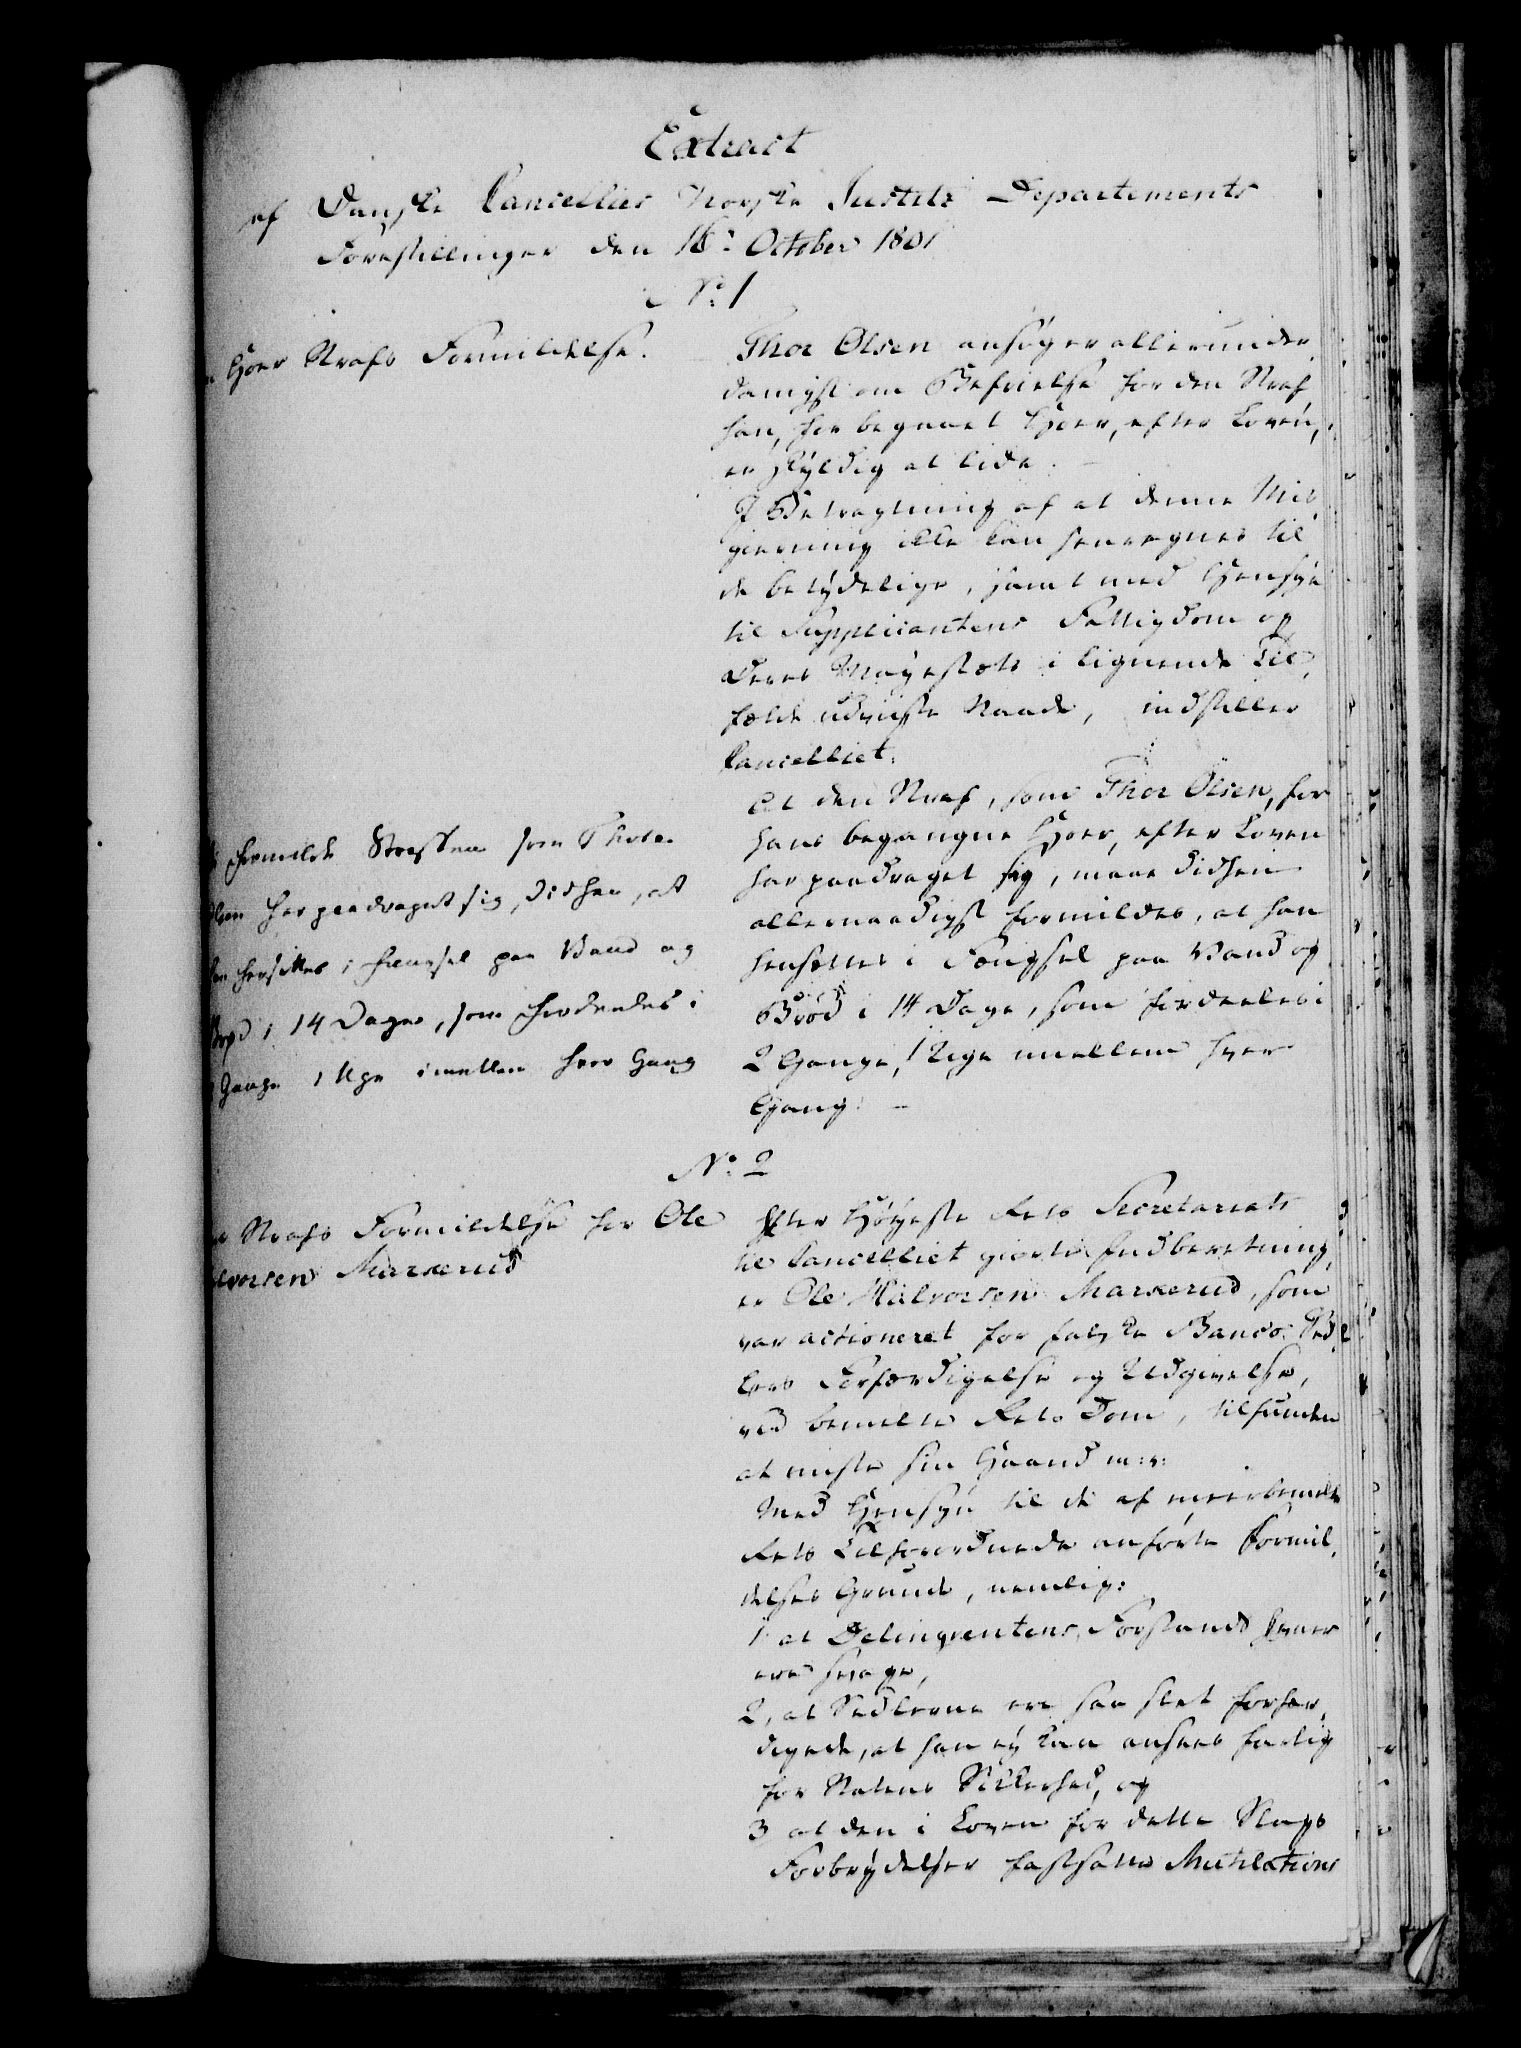 Extract
af Danske Cancellies Norske Justits Departements
Forestillinger den 16de October 1801
No: 1
Hoer Strafs Formildelse.
Thor Olsen ansøger allerunder,
danigst om Befrielse for den Straf
han, for begaaet Hoer, efter Loven,
er skyldig at lide.
I Betragtning af at denne Mis,
gierning ikke kan henregnes til
de betydelige, samt med Hensyn
til Supplicantens Fattigdom og
Deres Majestæts i lignende Til,
fælde udviiste Naade, indstiller
Cancelliet:
At den Straf, som Thor Olsen, for
hans begangne Hoer, efter Loven
har paadraget sig, maae didhen
allernaadigst formildes, at han
hensættes i Fængsel paa Vand og
Brød i 14 Dage, som fordeeles i
2 Gange, 1 Uge imellem hver
Gang. –
formilde Straffen som Thore
Olsen har paadraget sig, didhen, at
han hensættes i Fængsel paa Vand og
Brød i 14 Dage, som fordeeles i
Gange 1 Uge imellem hver Gang
No: 2
Strafs Formildelse for Ole
Halvorsen Markerud
Efter Høyeste Rets Secretariats
til Cancelliet giorte Indberetning,
er Ole Halvorsen Markerud, som
var actioneret for falske Banco Sed,
lers Forfærdigelse og Udgivelse,
ved bemelte Rets Dom, tilfunden
at miste sin Haand m:v:
Med Hensyn til de af meerbemelte
Rets Tilforordnede anførte Formil,
delses Grunde, nemlig:
1 at Delinqventens Forstands Evner
ere svage,
2, at Sedlerne ere saa slet forfær,
digede, at han ey kan ansees farlig
for Statens Sikkerhed, og
3 at den i Loven for dette Slags
Forbrydelser fastsatte Mutilations